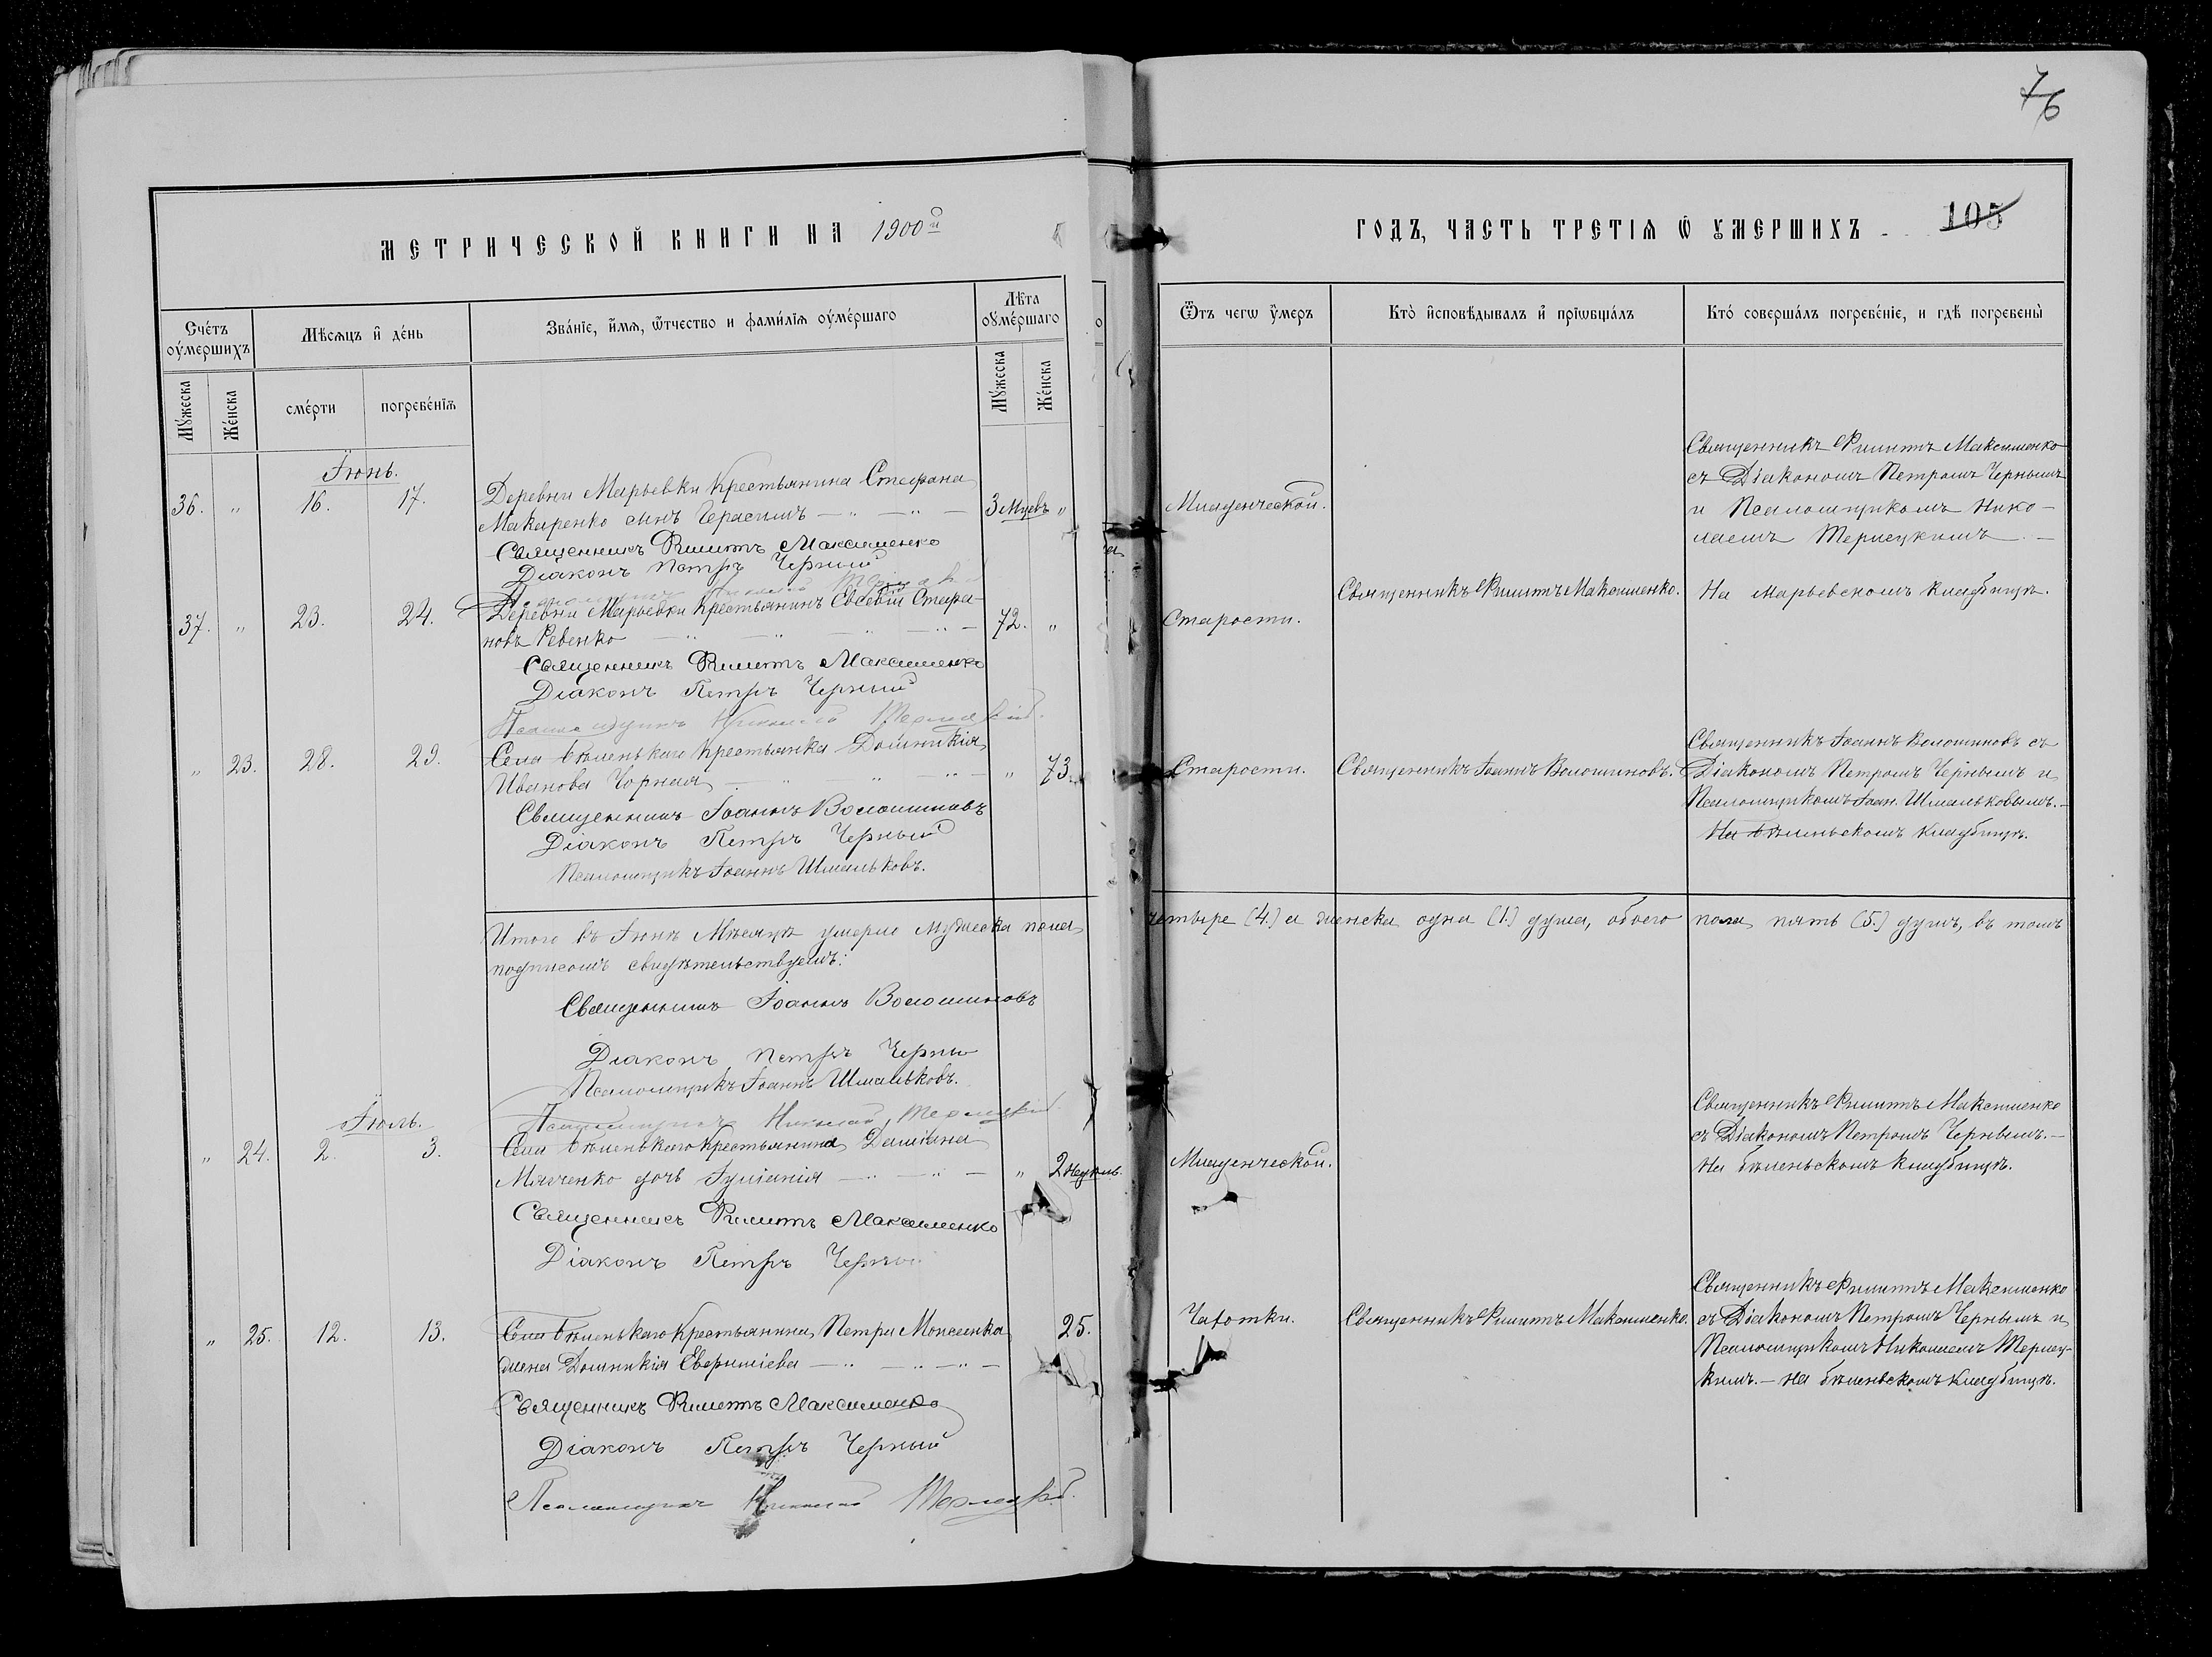 76
МЕТРИЧЕСКОЙ КНИГИ НА 1900й
Счетъ оумершихъ
Мѣсяцъ и день
Званіе, имя, ѿтчество и фамилія оумершаго
Лѣта оумершаго
Мужеска
Женска
смерти
погребенія
Мужеска
Женска
Іюнь.
36. " 16. 17. Деревни Марьевки крестьянина Стефана
Макаренко сынъ Герасимъ — " — " — 3 Мцевъ "
Священникъ Филиппъ Максименко
Діаконъ Петръ Черный
37. " 23. 24. Деревни Марьевки крестьянинъ Евсевій Стефа-
новъ Ревенко — " — " — " — " — 72. "
Священникъ Филиппъ Максименко
Діаконъ Петръ Черный
Псаломщикъ Николай Терлецкій.
" 23. 28. 29. Села Бѣленькаго крестьянка Домникія
Иванова Чорная — " " " — " 73.
Священникъ Іоаннъ Волошиновъ
Діаконъ Петръ Черный
Псаломщикъ Іоаннъ Шмальковъ.
Итого въ Іюнѣ Мѣсяцѣ умерло мужеска пола
подписомъ свидѣтельствуемъ:
Священникъ Іоаннъ Волошиновъ
Діаконъ Петръ Черны
Псаломщикъ Іоаннъ Шмальковъ.
Псаломщикъ Николай Терлецкій.
Іюль.
" 24. 2. 3. Села Бѣленькаго крестьянина Даміана
дочь Іуліанія — " — " — " 2 недѣль.
Священникъ Филиппъ Максименко
Діаконъ Петръ Черный
" 25. 12. 13. Села Бѣленькаго крестьянина Петра
жена Домникія — " — " — " — 25.
Священникъ Филиппъ Максименко
Діаконъ Петръ Черный
Псаломщикъ Николай Терлецкій.
ГОДЪ, ЧАСТЬ ТРЕТІЯ Ѡ УМЕРШИХЪ
105
Ѿтъ чегѡ умеръ
Кто исповѣдывалъ и пріѡбщалъ
Кто совершалъ погребеніе, и гдѣ погребены
Священникъ Филиппъ Максименко
съ Діакономъ Петромъ Чернымъ
Младенческой. и Псаломщикомъ Нико-
лаемъ Терлецкимъ. —
Священникъ Филиппъ Максименко. На Марьевскомъ кладбищѣ.
Старости.
Священникъ Іоаннъ Волошиновъ съ
Старости. Священникъ Іоаннъ Волошиновъ. Діакономъ Петромъ Чернымъ и
Псаломщикомъ Іоан. Шмальковымъ. —
На бѣленьскомъ кладбищѣ.
четыре (4.) а женска одна (1.) душа, обоего пола пять (5.) душъ, въ томъ
Священникъ Филиппъ Максименко
съ Діакономъ Петромъ Чернымъ. —
Младенческой. На бѣленьскомъ кладбищѣ.
Священникъ Филиппъ Максименко
Чахотки. Священникъ Филиппъ Максименко. съ Діакономъ Петромъ Чернымъ и
Псаломщикомъ Николаемъ Терлец-
кимъ. — На бѣленьскомъ кладбищѣ.